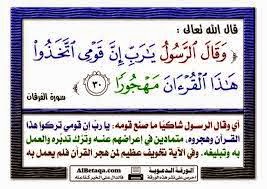 قال الله تعالى :
﴿ وَقَالَ ٱلرَّسُولُ يَٰرَبِّ إِنَّ قَوْمِي ٱتَّخَذُواْ
هَٰذَا ٱلْقُرْءَانَ مَهْجُورًا ٣٠ ﴾
سورة الفرقان
أي وقال الرسول شاكيًا ما صنع قومه : يا ربِّ إن قومي تركوا هذا
القرآن وهجروه، متمادين في إعراضهم عنه وترك تدبُّره والعمل
به وتبليغه . وفي الآية تخويف عظيم لمن هجر القرآن فلم يعمل به
الورقة الدعوية
AlBetaqa.com